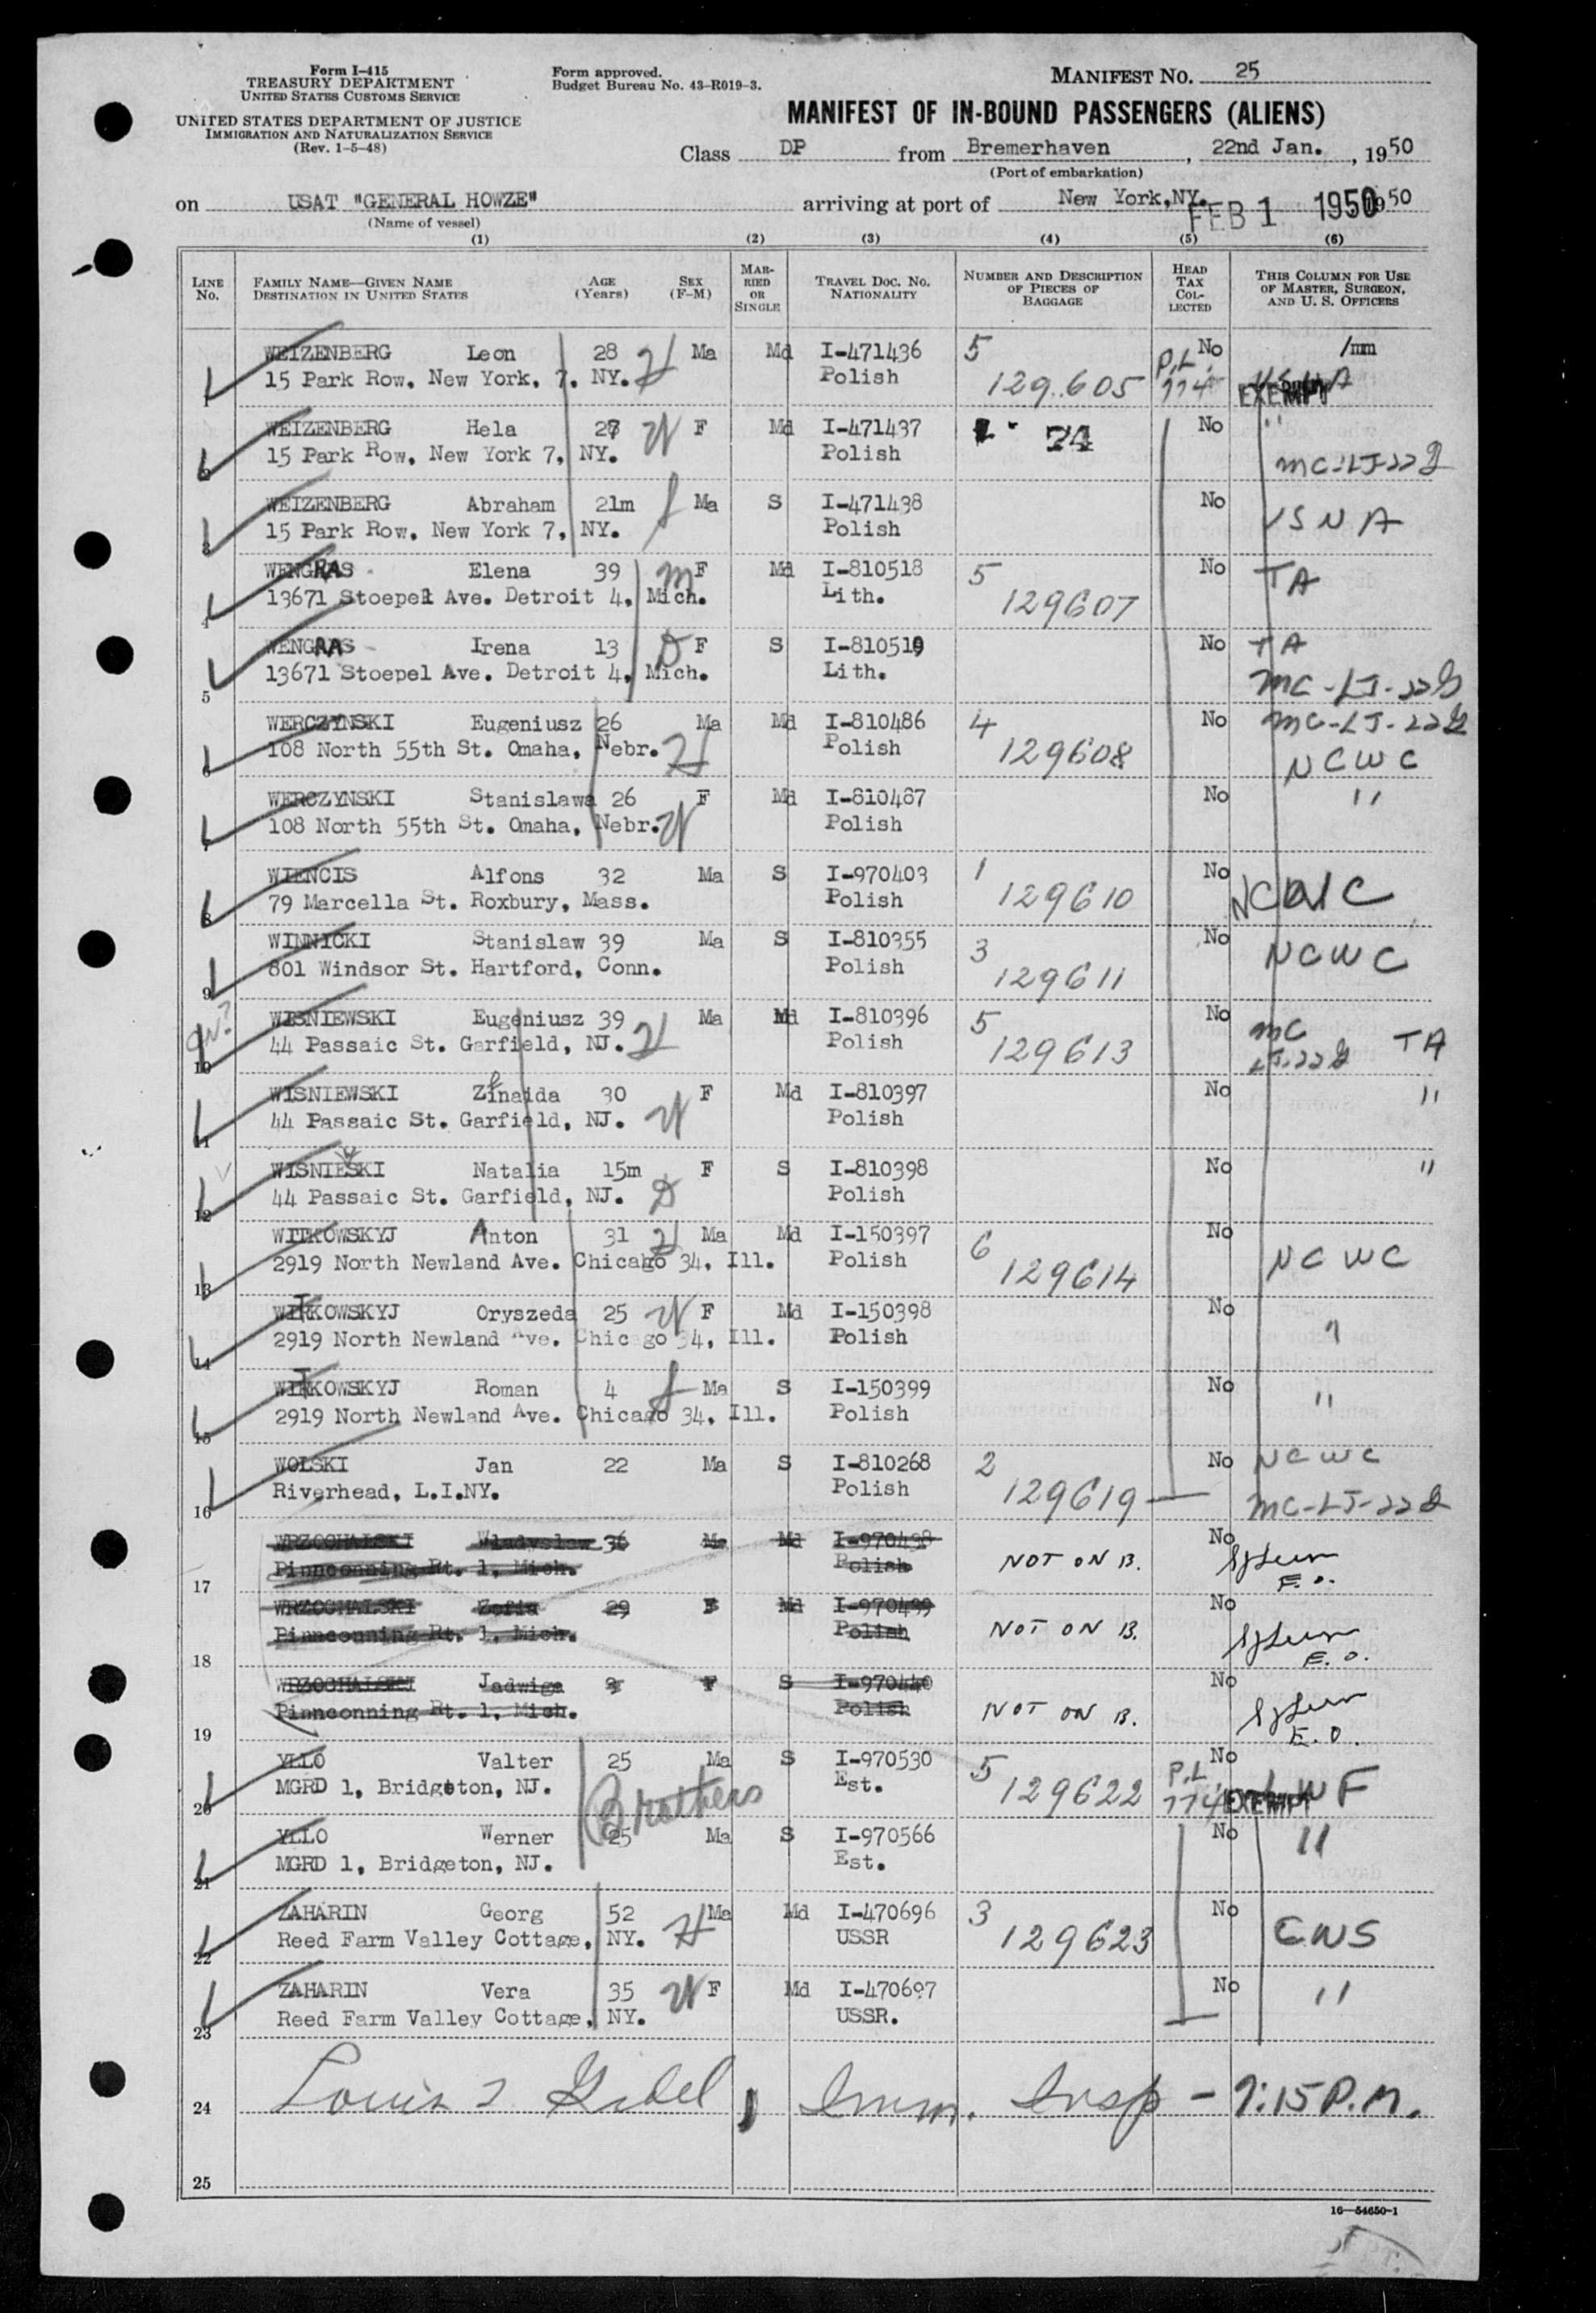 Form I-415
TREASURY DEPARTMENT
UNITED STATES CUSTOMS SERVICE
UNITED STATES DEPARTMENT OF JUSTICE
IMMIGRATION AND NATURALIZATION SERVICE
(Rev. 1-5-48)
Form approved.
Budget Bureau No. 43-R019-3.
MANIFEST NO. 25
MANIFEST OF IN-BOUND PASSENGERS (ALIENS)
Class DP from Bremerhaven, 22nd Jan., 1950
(Port of embarkation)
on USAT "GENERAL HOWZE" arriving at port of New York,NY. FEB 1 1950 1950
(Name of vessel)
(1) (2) (3) (4) (5) (6)
LINE No. FAMILY NAME—GIVEN NAME DESTINATION IN UNITED STATES AGE (Years) SEX (F-M) MARRIED OR SINGLE TRAVEL DOC. NO. NATIONALITY NUMBER AND DESCRIPTION OF PIECES OF BAGGAGE HEAD TAX COLLECTED THIS COLUMN FOR USE OF MASTER, SURGEON, AND U. S. OFFICERS
1 WEIZENBERG Leon 28 H Ma Md I-471436 5 No /nm
15 Park Row, New York, 7, NY. Polish 129605 P.L. 774 EXEMPT
2 WEIZENBERG Hela 27 W F Md I-471437 74 No "
15 Park Row, New York 7, NY. Polish MC-LJ-22
3 WEIZENBERG Abraham 21m S Ma S I-471438 No
15 Park Row, New York 7, NY. Polish USNA
4 WENGRAS Elena 39 M F Md I-810518 5 No TA
13671 Stoepel Ave. Detroit 4, Mich. Lith. 129607
5 WENGRAS Irena 13 D F S I-810519 No TA
13671 Stoepel Ave. Detroit 4, Mich. Lith. MC-LJ-22
6 WERCZYNSKI Eugeniusz 26 Ma Md I-810486 4 No MC-LJ-22
108 North 55th St. Omaha, Nebr. H Polish 129608 NCWC
7 WERCZYNSKI Stanislawa 26 F Md I-810487 No "
108 North 55th St. Omaha, Nebr. W Polish
8 WIENCIS Alfons 32 Ma S I-970403 1 No
79 Marcella St. Roxbury, Mass. Polish 129610 NCWC
9 WINNICKI Stanislaw 39 Ma S I-810355 3 No
801 Windsor St. Hartford, Conn. Polish 129611 NCWC
10 WISNIEWSKI Eugeniusz 39 Ma Md I-810396 5 No MC
44 Passaic St. Garfield, NJ. H Polish 129613 LJ-22 TA
11 WISNIEWSKI Zinaida 30 F Md I-810397 No "
44 Passaic St. Garfield, NJ. W Polish
12 WISNIESKI Natalia 15m F S I-810398 No "
44 Passaic St. Garfield, NJ. D Polish
13 WITKOWSKYJ Anton 31 H Ma Md I-150397 6 No
2919 North Newland Ave. Chicago 34, Ill. Polish 129614 NCWC
14 WITKOWSKYJ Oryszeda 25 W F Md I-150398 No
2919 North Newland Ave. Chicago 34, Ill. Polish "
15 WITKOWSKYJ Roman 4 S Ma S I-150399 No
2919 North Newland Ave. Chicago 34, Ill. Polish "
16 WOLSKI Jan 22 Ma S I-810268 2 No NCWC
Riverhead, L.I.NY. Polish 129619 MC-LJ-22
17 WRZOCHALSKI Wladyslaw 36 Ma Md I-970438 No
Pinnconning Rt. 1, Mich. Polish NOT ON B. E.O.
18 WRZOCHALSKI Zofia 29 F Md I-970439 No
Pinnconning Rt. 1, Mich. Polish NOT ON B. E.O.
19 WRZOCHALSKI Jadwiga F S I-970440 No
Pinnconning Rt. 1, Mich. Polish NOT ON B. E.O.
20 YLLO Valter 25 Ma S I-970530 5 No
MGRD 1, Bridgeton, NJ. Brothers Est. 129622 P.L. 774 EXEMPT LWF
21 YLLO Werner 25 Ma S I-970566 No "
MGRD 1, Bridgeton, NJ. Est.
22 ZAHARIN Georg 52 H Ma Md I-470696 3 No
Reed Farm Valley Cottage, NY. USSR 129623 CWS
23 ZAHARIN Vera 35 W F Md I-470697 No "
Reed Farm Valley Cottage, NY. USSR.
24 Louis Imm. Insp - 7:15 P.M.
25
16—54650-1